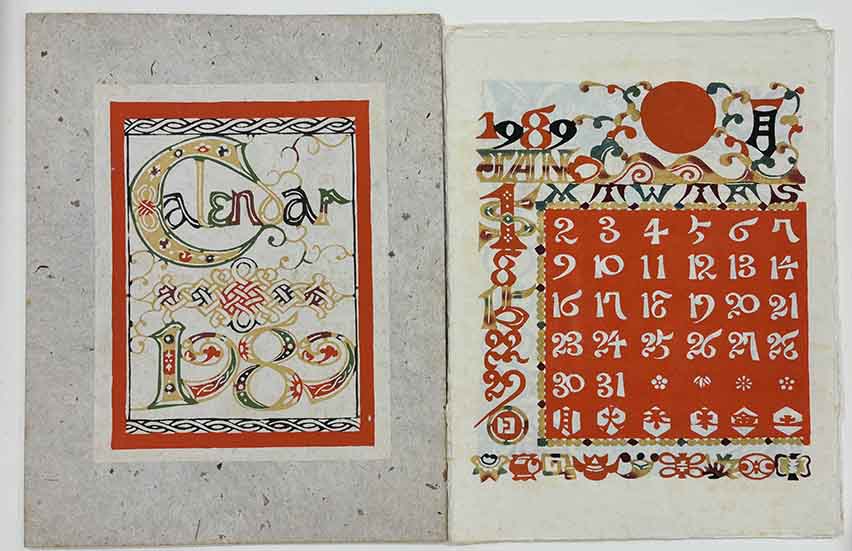 Calendar
1989
1989 月
JAN
M T W T F S
1 2 3 4 5 6 7
8 9 10 11 12 13 14
15 16 17 18 19 20 21
22 23 24 25 26 27 28
29 30 31
日 月 火 水 木 金 土